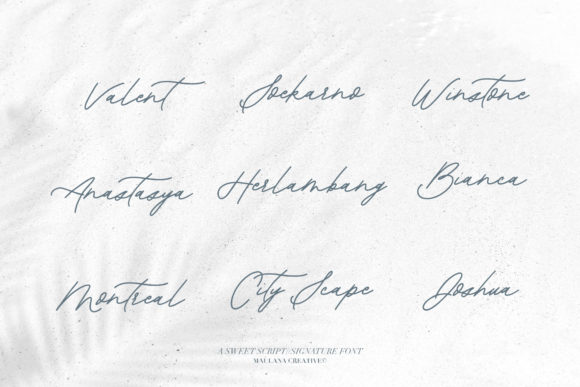 Valent Soekarno Winstone
Anastasya Herlambang Bianca
Montreal City Scape Joshua
A SWEET SCRIPT//SIGNATURE FONT
MAULANA CREATIVE©